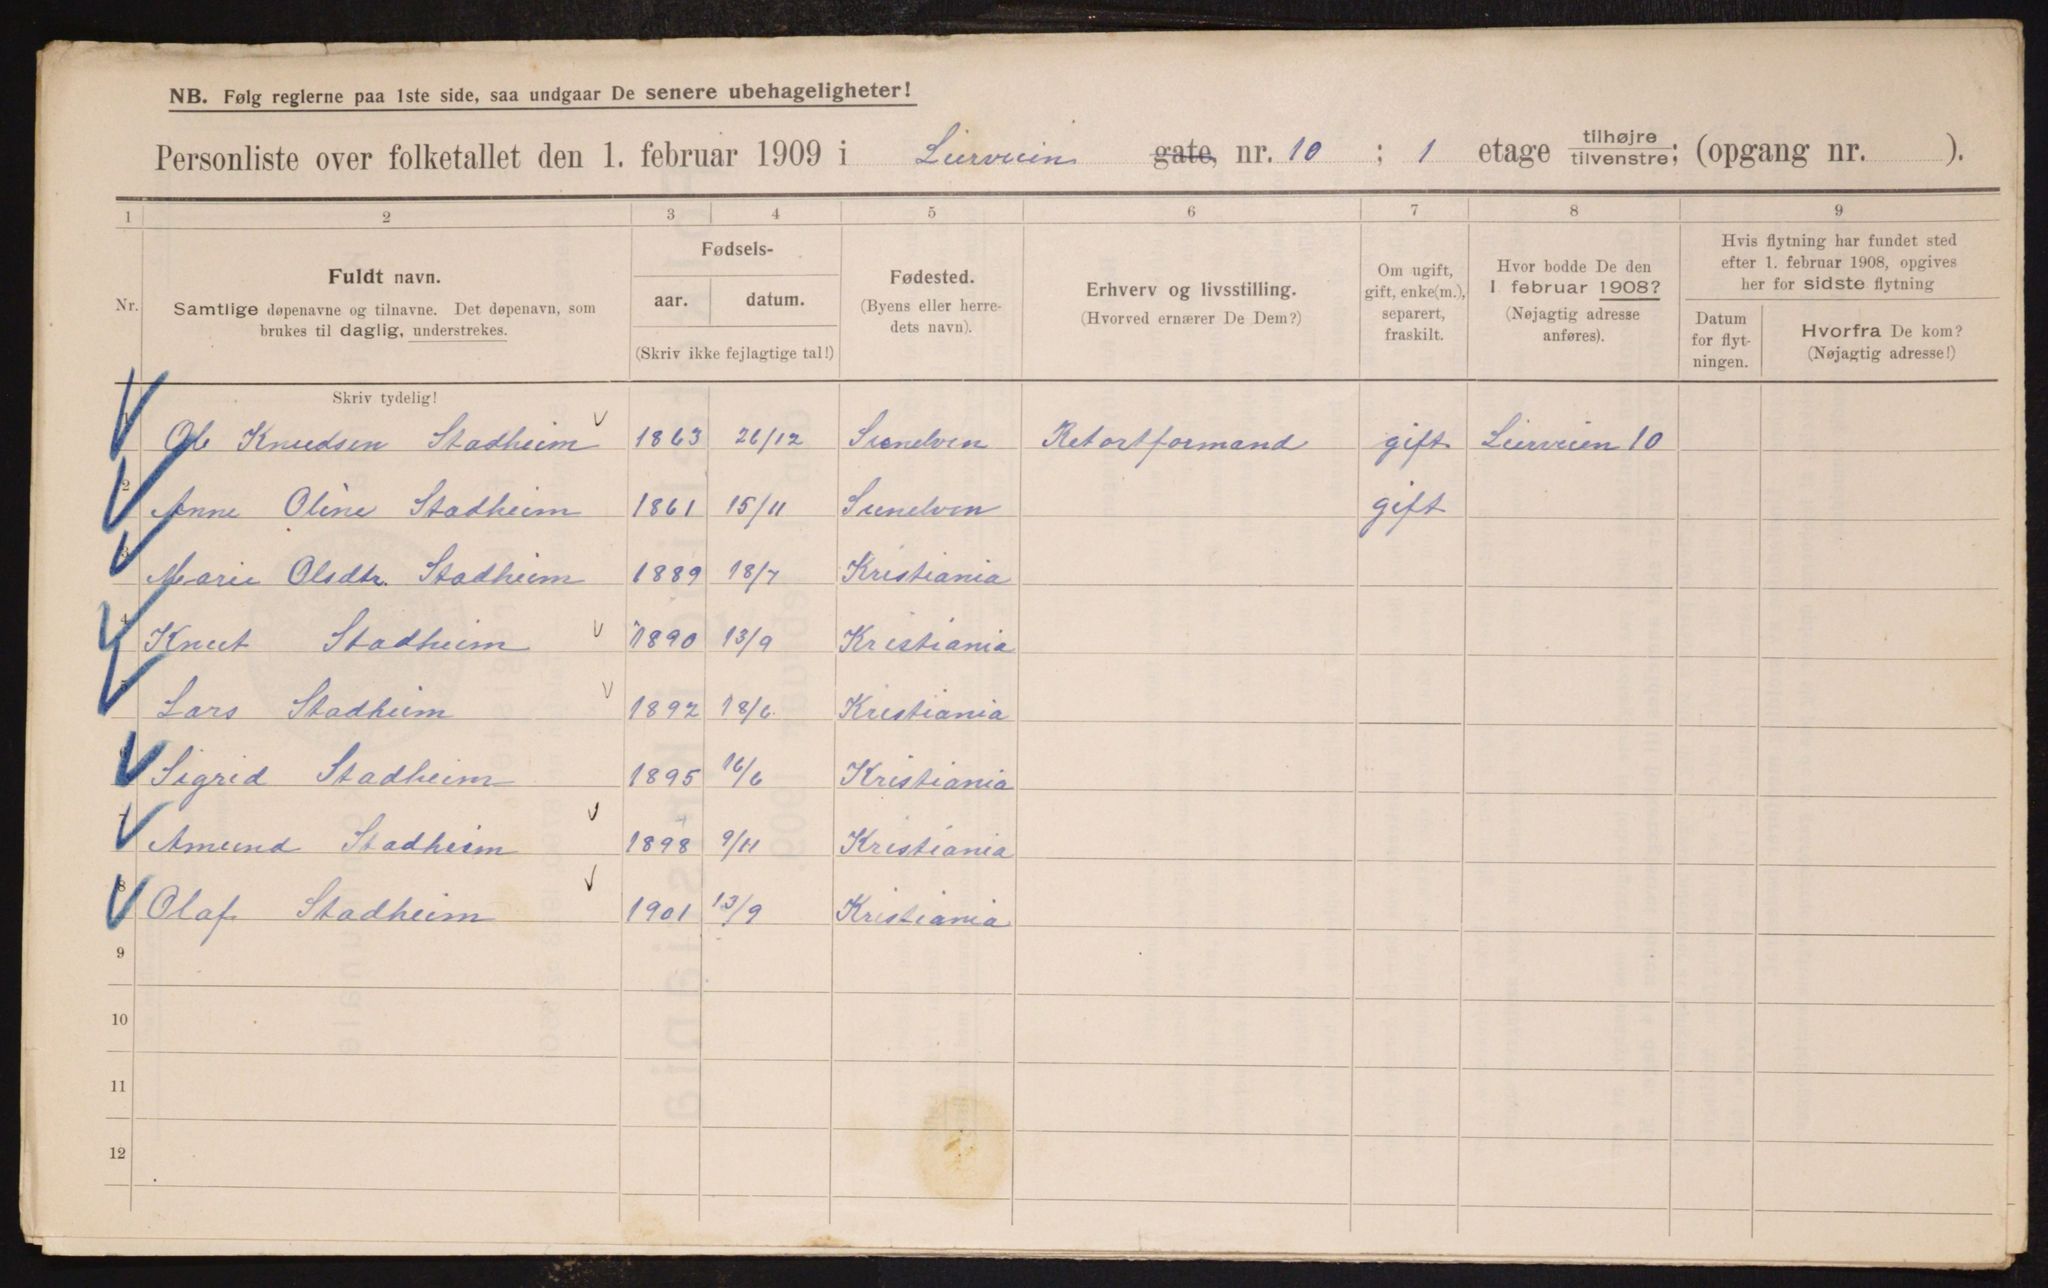 NB. Følg reglerne paa 1ste side, saa undgaar De senere ubehageligheter!
Personliste over folketallet den 1. februar 1909 i Lierveien gate, nr. 10 ; 1 etage tilhøjre tilvenstre; (opgang nr. ).
1 2 3 4 5 6 7 8 9
Nr. Fuldt navn. Samtlige døpenavne og tilnavne. Det døpenavn, som brukes til daglig, understrekes.
Fødsels-
aar. datum.
(Skriv ikke fejlagtige tal!)
Fødested.
(Byens eller herre-
dets navn).
Erhverv og livsstilling.
(Hvorved ernærer De Dem?)
Om ugift,
gift, enke(m.),
separert,
fraskilt.
Hvor bodde De den
1. februar 1908?
(Nøjagtig adresse
anføres).
Hvis flytning har fundet sted
efter 1. februar 1908, opgives
her for sidste flytning
Datum
for flyt-
ningen.
Hvorfra De kom?
(Nøjagtig adresse!)
Skriv tydelig!
Ole Knudsen Stadheim 1863 26/12 Sunelven Retortformand gift Lierveien 10
2 Anne Oline Stadheim 1861 15/11 Sunelven gift
3 Marie Olsdtr. Stadheim 1889 18/7 Kristiania
4 Knut Stadheim 1890 13/9 Kristiania
5 Lars Stadheim 1892 18/6 Kristiania
6 Sigrid Stadheim 1895 16/6 Kristiania
7 Amund Stadheim 1898 9/11 Kristiania
8 Olaf Stadheim 1901 13/9 Kristiania
9
10
11
12